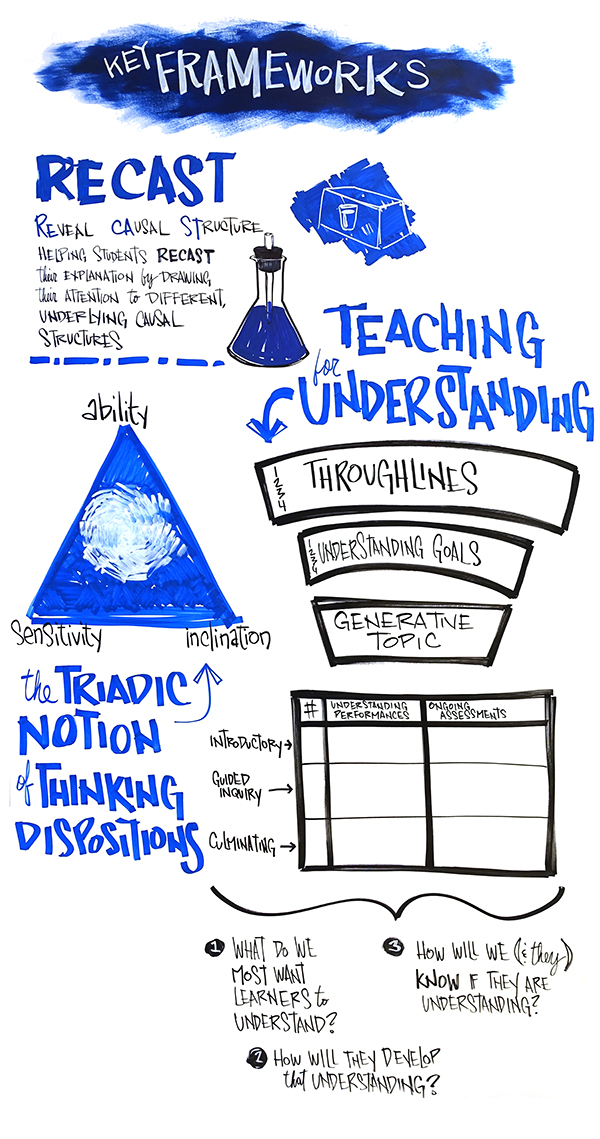 KEY FRAMEWORKS
RECAST
REVEAL CAUSAL STRUCTURE
HELPING STUDENTS RECAST
their EXPLANATION by DRAWING
their ATTENTION to DIFFERENT,
UNDERLYING CAUSAL
STRUCTURES
TEACHING
for
UNDERSTANDING
1
2
3
4
THROUGHLINES
1
2
3
4
UNDERSTANDING GOALS
GENERATIVE
TOPIC
ability
Sensitivity
inclination
the TRIADIC
NOTION
of THINKING
DISPOSITIONS
# UNDERSTANDING PERFORMANCES
ONGOING ASSESSMENTS
INTRODUCTORY
GUIDED
INQUIRY
CULMINATING
1 WHAT DO WE
MOST WANT
LEARNERS to
UNDERSTAND?
2 HOW WILL THEY DEVELOP
that UNDERSTANDING?
3 HOW WILL WE (& they)
KNOW IF THEY ARE
UNDERSTANDING?